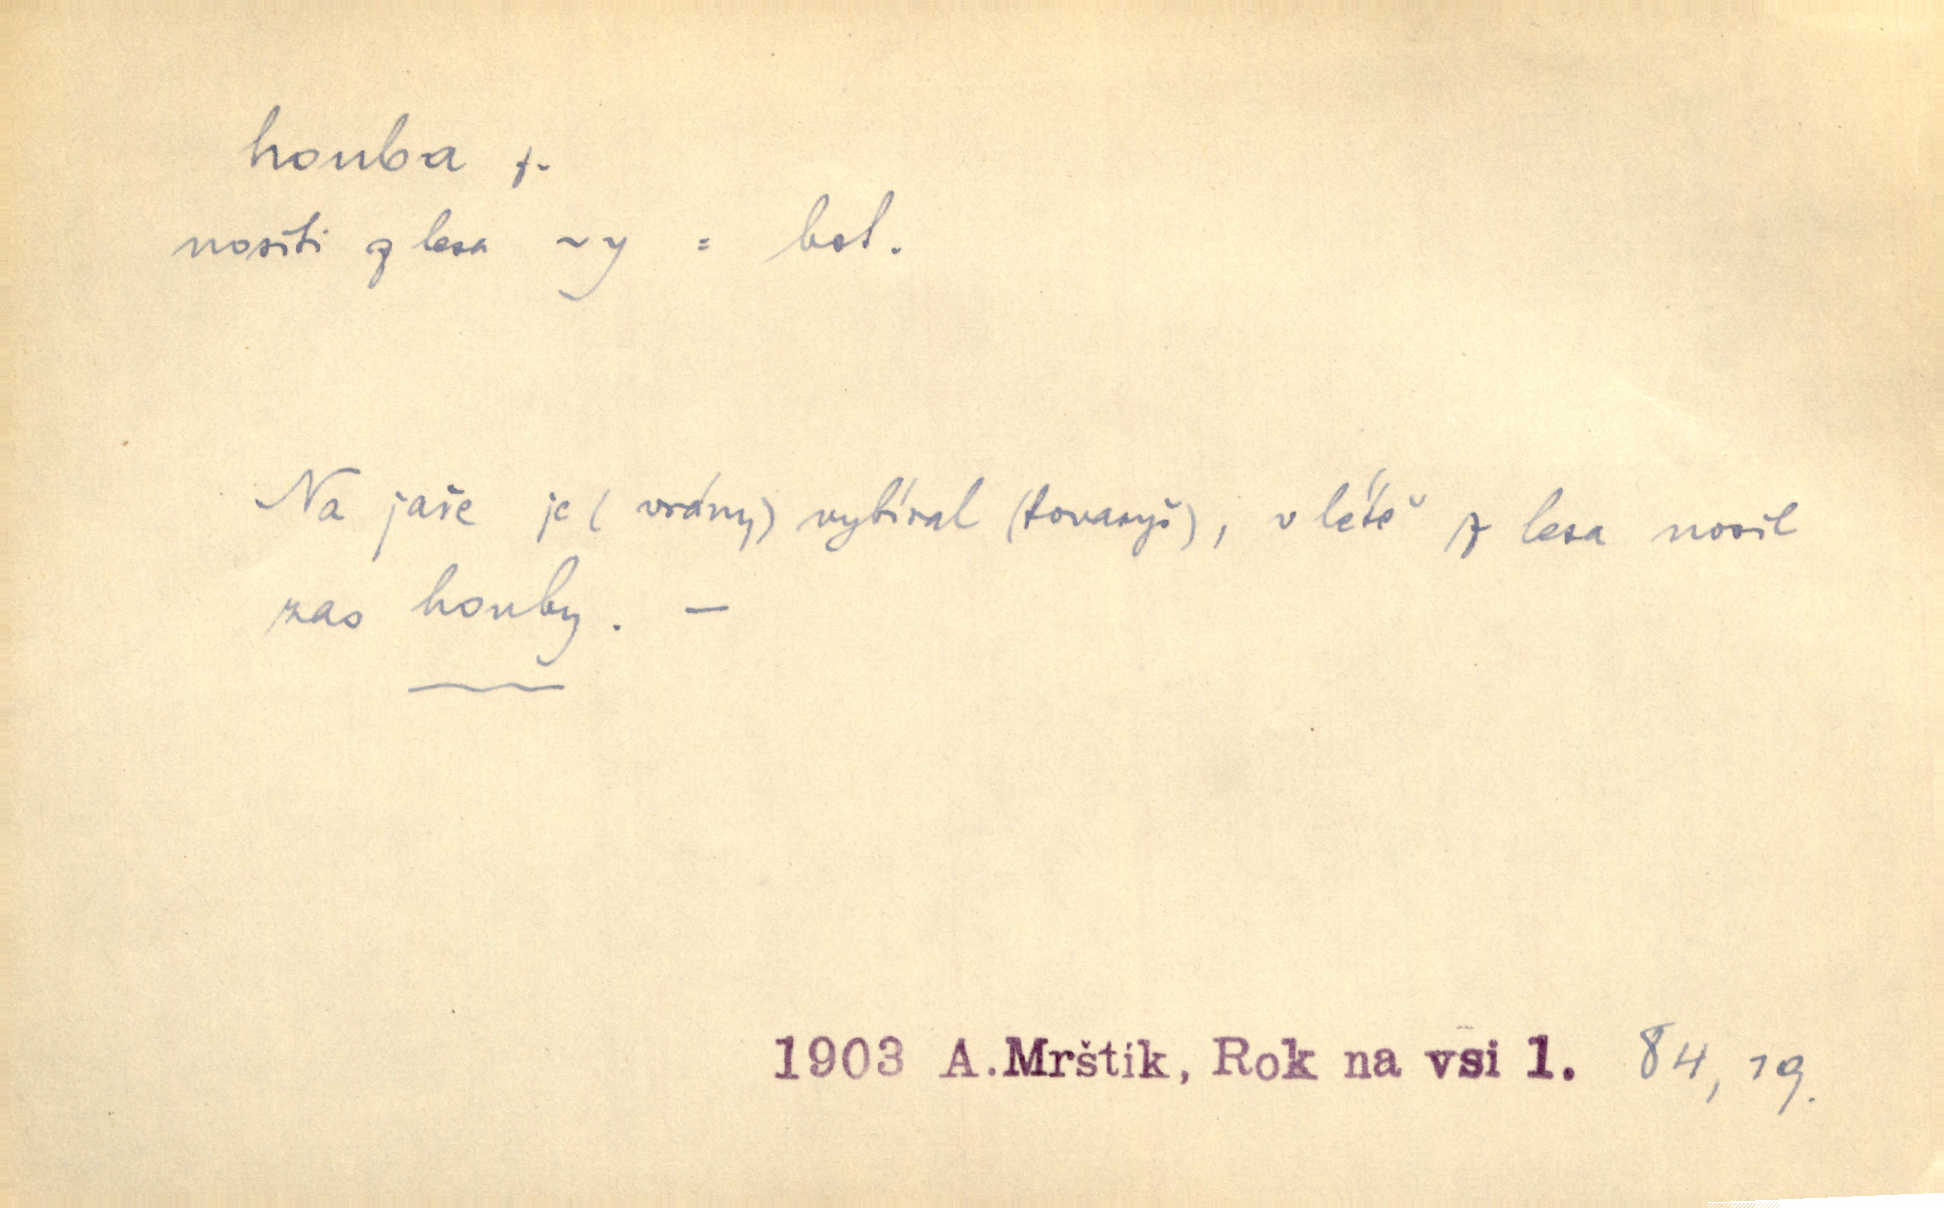 houba f.
nositi z lesa ~y = bot.
Na jaře je (vrány) vybíral (tovaryš), v létě z lesa nosil
zas houby. —
1903 A.Mrštík, Rok na vsi 1. 84, 19.